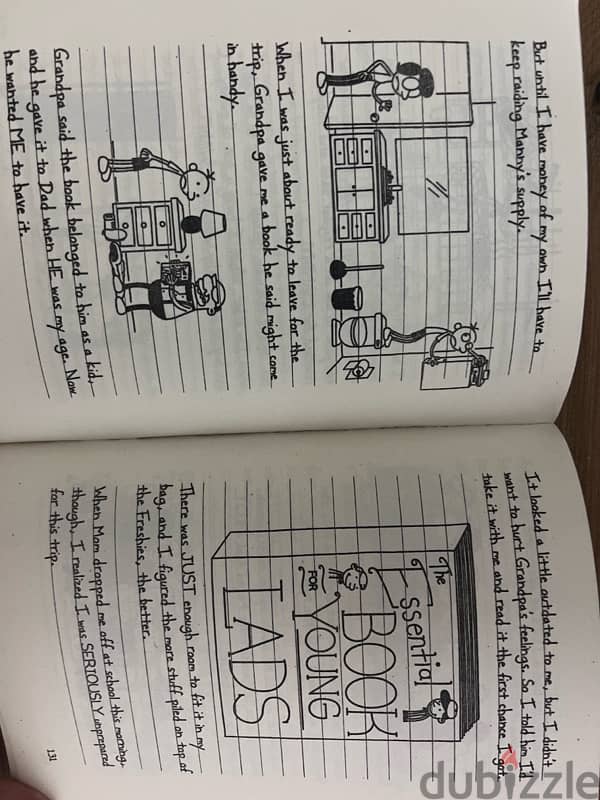 But until I have money of my own I'll have to
keep raiding Manny's supply.
When I was just about ready to leave for the
trip, Grandpa gave me a book he said might come
in handy.
Grandpa said the book belonged to him as a kid,
and he gave it to Dad when HE was my age. Now
he wanted ME to have it.
It looked a little outdated to me, but I didn't
want to hurt Grandpa's feelings. So I told him I'd
take it with me and read it the first chance I got.
The
Essential
BOOK
FOR YOUNG
LADS
There was JUST enough room to fit it in my
bag, and I figured the more stuff piled on top of
the Freshies, the better.
When Mom dropped me off at school this morning,
though, I realized I was SERIOUSLY unprepared
for this trip.
131
dubizzle